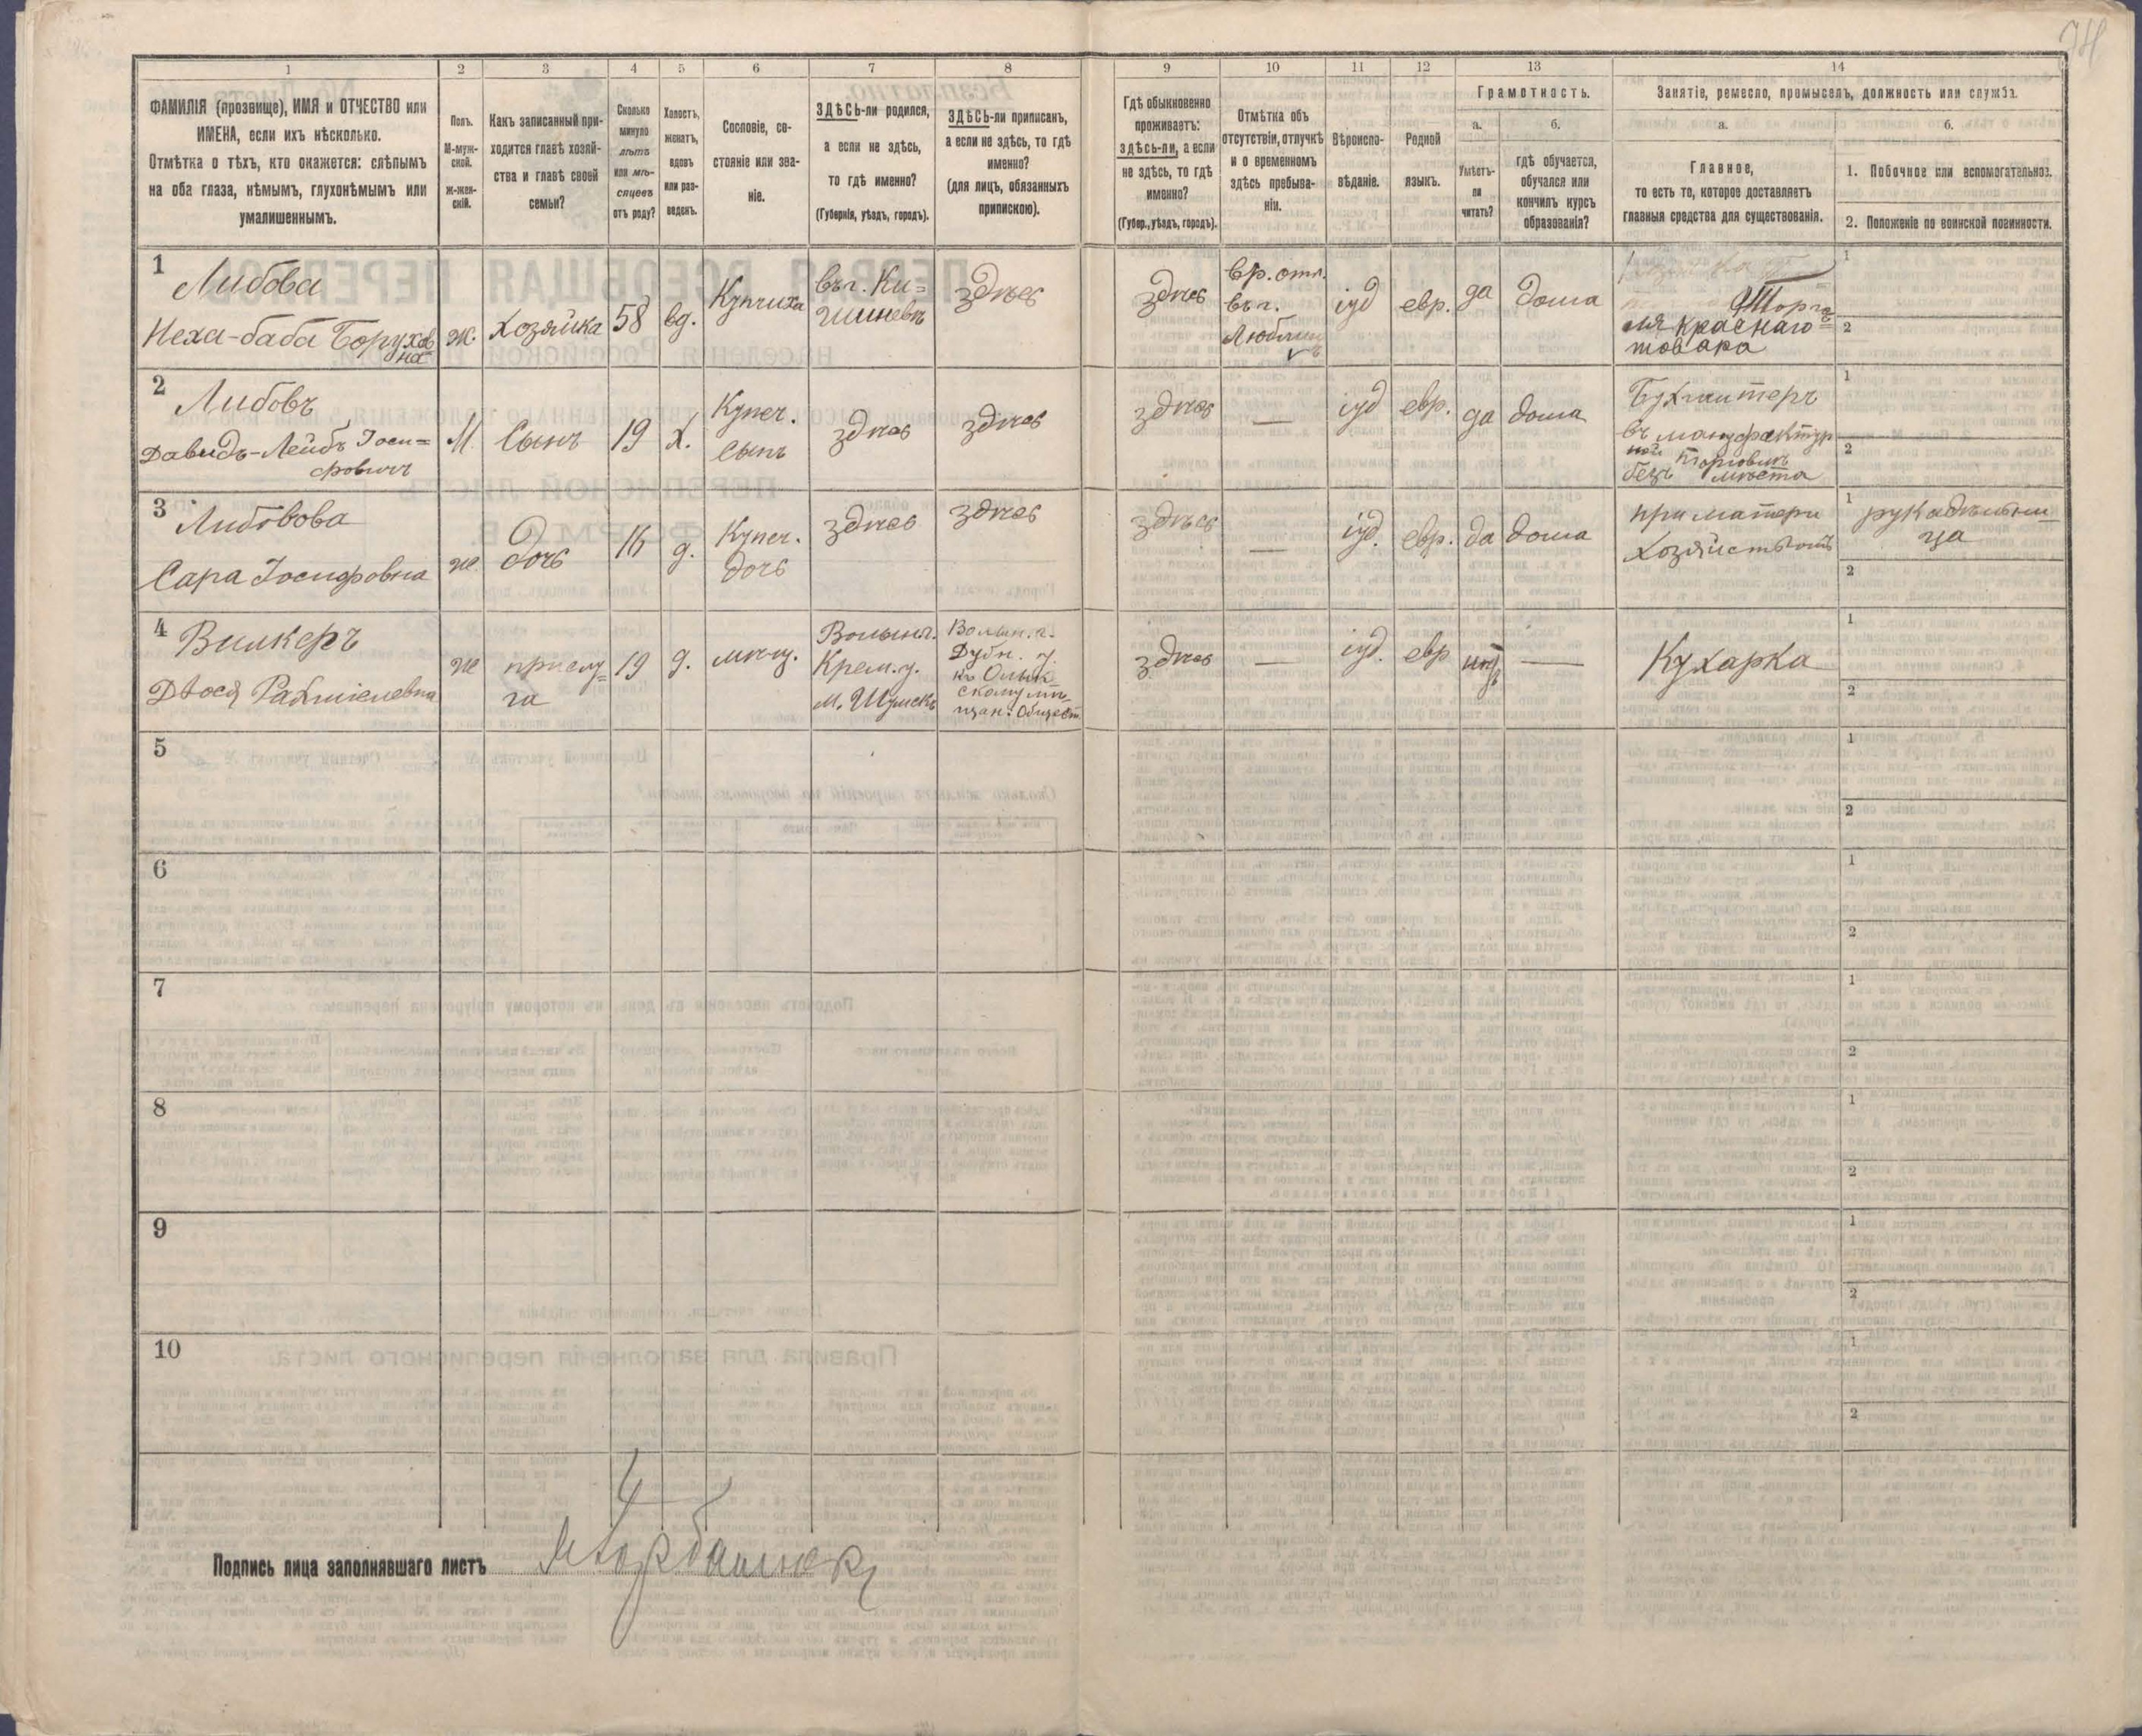 1
2
3
4
5
6
7
8
9
10
11
12
13
14
ФАМИЛІЯ (прозвище), ИМЯ и ОТЧЕСТВО или
ИМЕНА, если ихъ нѣсколько.
Отмѣтка о тѣхъ, кто окажется: слѣпымъ
на оба глаза, нѣмымъ, глухонѣмымъ или
умалишеннымъ.
Полъ.
М-муж-
ской.
Ж-жен-
скій.
Какъ записанный при-
ходится главѣ хозяй-
ства и главѣ своей
семьи?
Сколько
минуло
лѣтъ
или мѣ-
сяцевъ
отъ роду?
Холостъ,
женатъ,
вдовъ
или раз-
веденъ.
Сословіе, со-
стояніе или зва-
ніе.
ЗДѢСЬ-ли родился,
а если не здѣсь,
то гдѣ именно?
(Губернія, уѣздъ, городъ).
ЗДѢСЬ-ли приписанъ,
а если не здѣсь, то гдѣ
именно?
(для лицъ, обязанныхъ
припискою).
Гдѣ обыкновенно
проживаетъ:
здѣсь-ли, а если
не здѣсь, то гдѣ
именно?
(Губер., уѣздъ, городъ).
Отмѣтка объ
отсутствіи, отлучкѣ
и о временномъ
здѣсь пребыва-
ніи.
Вѣроиспо-
вѣданіе.
Родной
языкъ.
Грамотность.
а.
Умѣетъ-
ли
читать?
б.
гдѣ обучается,
обучался или
кончилъ курсъ
образованія?
Занятіе, ремесло, промыселъ, должность или служба.
а.
Главное,
то есть то, которое доставляетъ
главныя средства для существованія.
б.
1. Побочное или вспомогательное.
2. Положеніе по воинской повинности.
1
Либова
Неха-баба Борухов
на
ж.
Хозяйка
58
вд.
Купчиха
въ г. Ки=
шиневѣ
здѣсь
здѣсь
вр. отл.
въ г.
Люблин
iуд
евр.
да
дома
Торго
ля краснаго
товара
1
2
2
Либовъ
Давидъ-Лейбъ Іоси=
фовичъ
М.
Сынъ
19
х.
Купеч.
сынъ
здѣсь
здѣсь
здѣсь
—
iуд
евр.
да
дома
Бухгалтеръ
въ мануфактур
ной торговлѣ
безъ мѣста
1
2
3
Либовова
Сара Іосифовна
ж.
дочь
16
д.
Купеч.
дочь
здѣсь
здѣсь
здѣсь
—
iуд.
евр.
да
дома
при матери
хозяйством
1
рукодѣльни
ца
2
4
Вилкеръ
Двося Рахмiелевна
ж
прислу=
га
19
д.
мѣщ.
Волын.
Крем. у.
м. Шумскъ
Волын. г.
Дубн. у.
къ Олык
скому мѣ
щан. Общест.
здѣсь
—
iуд.
евр
нѣтъ
—
Кухарка
1
2
5
1
2
6
1
2
7
1
2
8
1
2
9
1
2
10
1
2
4
Подпись лица заполнявшаго листъ